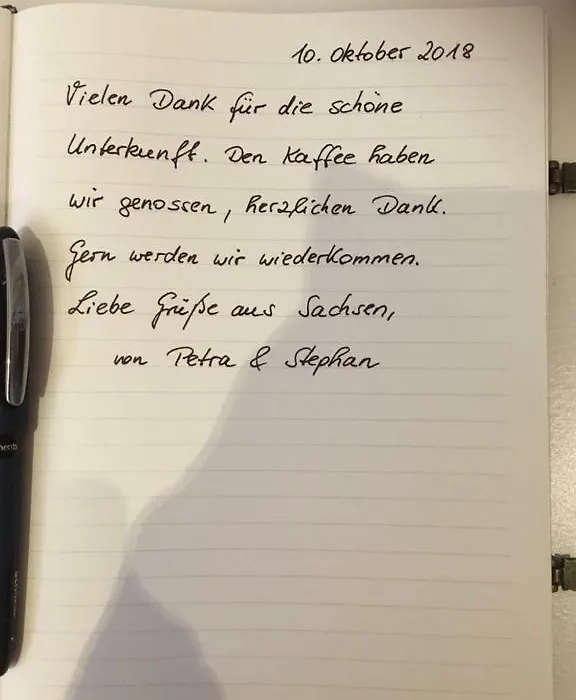 10. Oktober 2018
Vielen Dank für die schöne
Unterkunft. Den Kaffee haben
wir genossen, herzlichen Dank.
Gern werden wir wiederkommen.
Liebe Grüße aus Sachsen,
von Petra & Stephan
ments